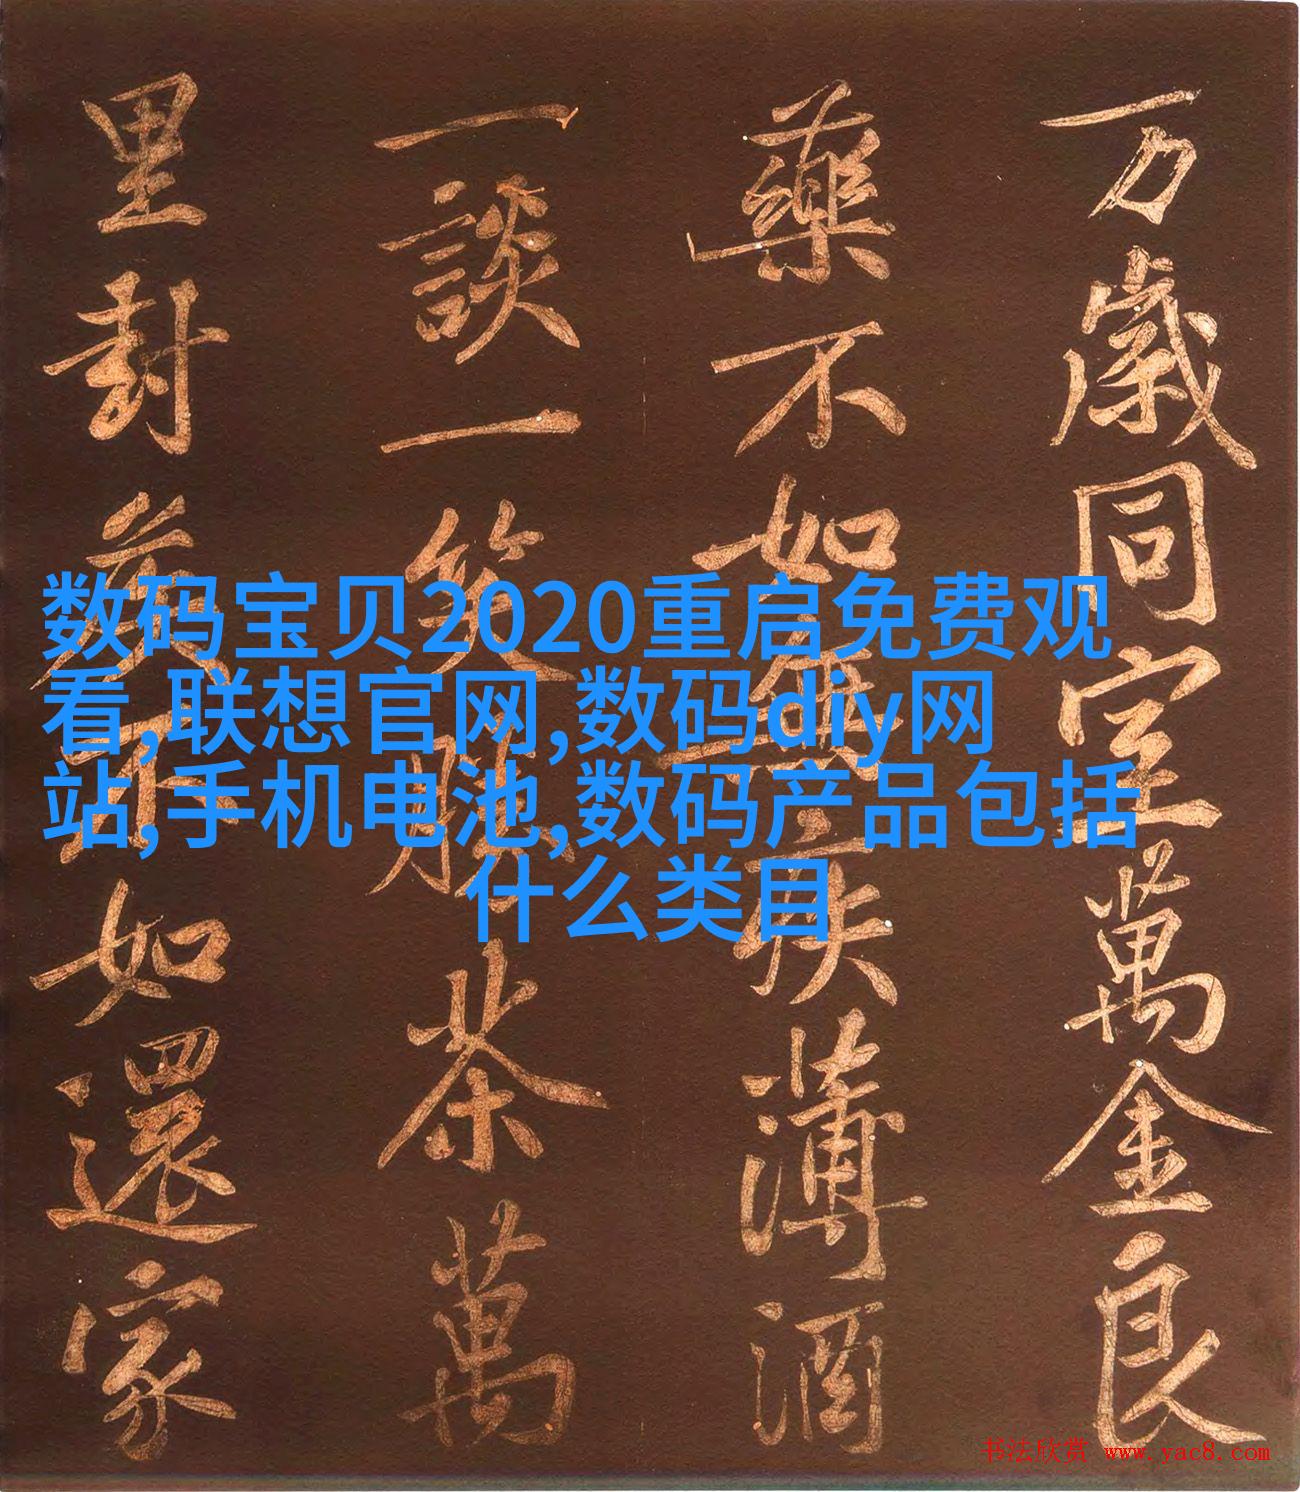 万歲同室萬金良
藥不如無疾薄酒
一談一笑勝茶萬
里封矦不如還家
数码宝贝2020重启免费观
看,联想官网,数码diy网
站,手机电池,数码产品包括
什么类目
书法欣赏 www.yac8.com